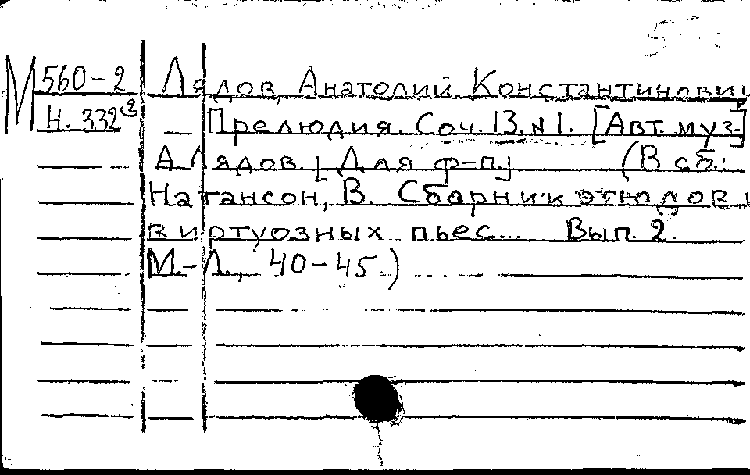 М 560-2 Лядов, Анатолий Константинович
Н. 332 Прелюдия. Соч. 13, № 1. [Авт. муз.]
А. Лядов. [Для ф-п.] (В сб.:
Натансон, В. Сборник этюдов и
виртуозных пьес... Вып. 2.
М.-Л., 40-45.)